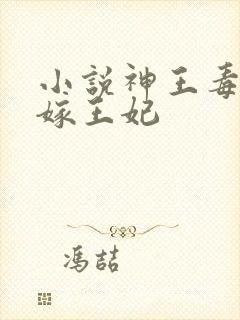 小説神王毒
嫁王妃
馮喆